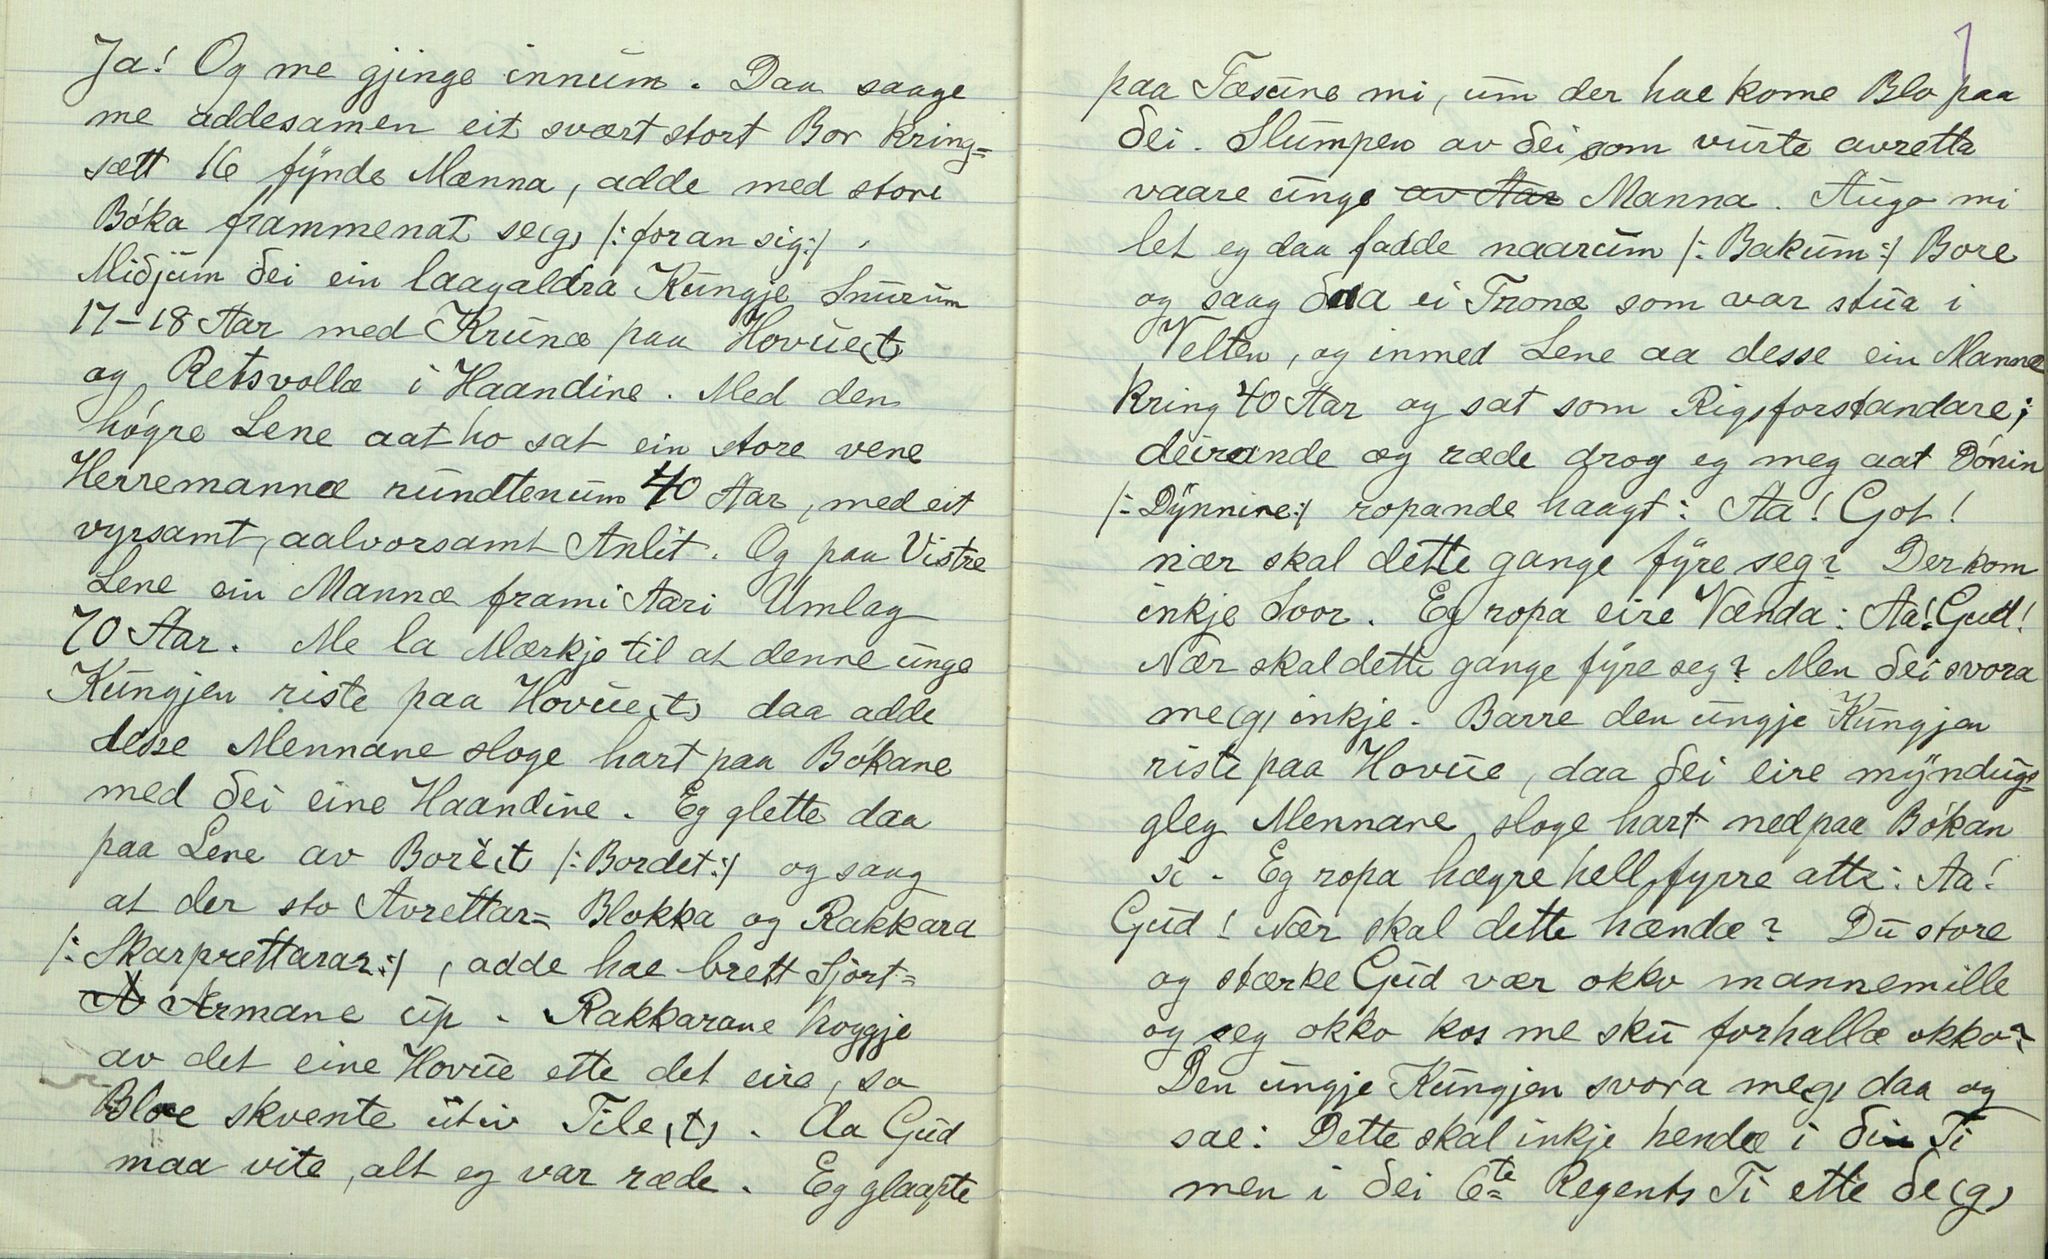 Ja! Og me gjinge innum. Daa saage
me addesamen eit svært stort Bor kring=
sætt 16 fynde Mænna, adde med store
Bóka frammenat se(g) /: foran sig:/.
Miðjum ðei ein laagaldra Kungje Snurum
17-18 Aar med Krunæ paa Hovue(t)
og Retsvollæ i Haandine. Med den
høgre Lene aat ho sat ein store vene
Herremannæ rundtenum 40 Aar, med eit
vyrsamt, aalvorsamt Anlit. Og paa Vistre
Lene ein Mannæ frami Aari Umlag
70 Aar. Me la Mærkje til at denne unge
Kungjen riste paa Hovue(t) daa adde
desse Mennane sloge hart paa Bókane
med ðei eine Haandine. Eg glette daa
paa Lene av Bore(t) /: Bordet:/ og saag
at der sto Avrettar= Blokka og Rakkara
/: Skarprettarar:/, adde hae brett Sjort=
Armane up. Rakkarane hoggje
av det eine Hovue ette det eire, so
Bloe skvente utiv Tile(t). Aa Gud
maa vite, alt eg var ræde. Eg glaapte
1
paa Tæsune mi, um der hae kome Blo paa
ðei. Slumpen av ðei som vurte avretta
vaare unge av Aar Manna. Augo mi
let eg daa fadde naarum /: Bakum:/ Bore
og saag ðaa ei Tronæ som var stua i
Velten, og inmed Lene aa desse ein Mannæ
kring 40 Aar og sat som Rigsforstandare;
deirande og ræde drog eg meg aat Dónin
/: Dynnine:/ ropande haagt: Aa! Got!
nær skal dette gange fyre seg? Der kom
inkje Svor. Eg ropa eire Vænda: Aa! Gud!
Nær skal dette gange fyre seg? Men ðei svora
me(g) inkje. Barre den ungje Kungjen
riste paa Hovue, daa ðei eire myndug=
gleg Mennane sloge hart ned paa Bókan
si. Eg ropa hægre hell fyrre atte: Aa!
Gud! Nær skal dette hændæ? Du store
og stærke Gud vær okko mannemille
og seg okko kos me sku forhallæ okko?
Den ungje Kungjen svora me(g) daa og
sae: Dette skal inkje hendæ i ðin Ti
men i ðei 6te Regents Ti ette ðe(g)